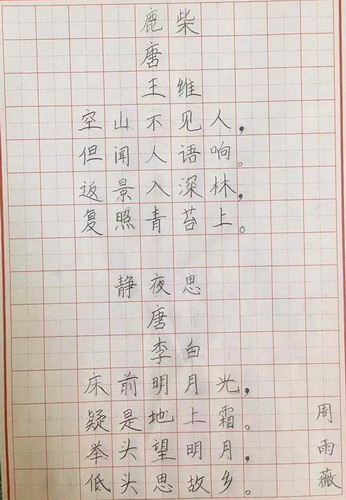 鹿柴
唐
王维
空山不见人，
但闻人语响。
返景入深林，
复照青苔上。
静夜思
唐
李白
床前明月光，
疑是地上霜。
举头望明月，
低头思故乡。
周雨薇